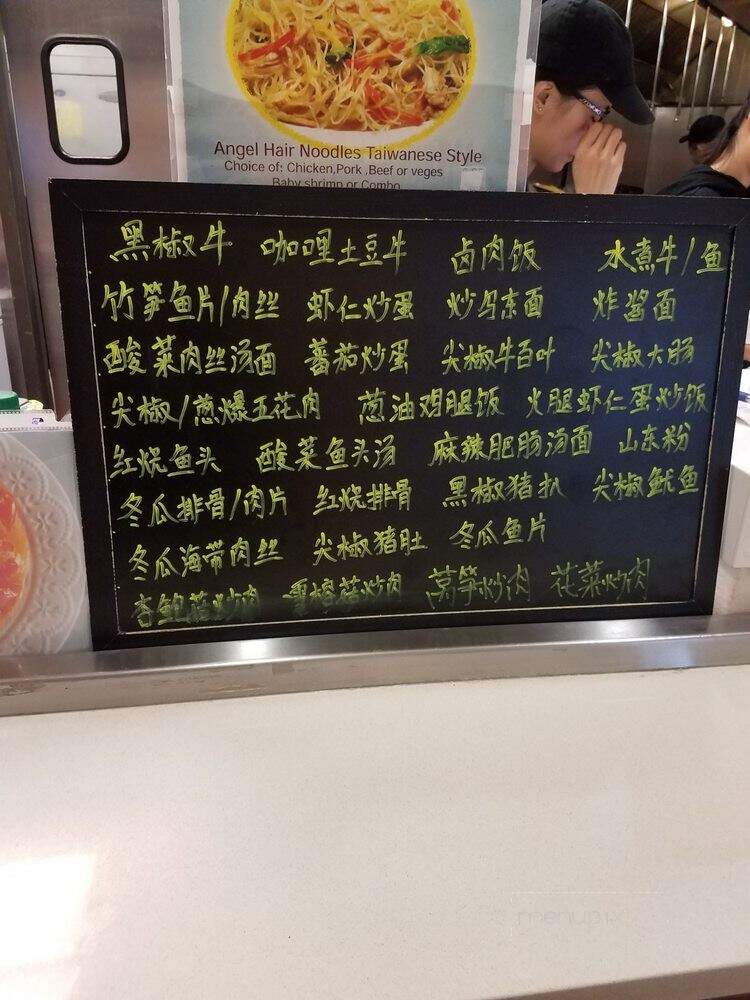 Angel Hair Noodles Taiwanese Style
Choice of: Chicken,Pork ,Beef or veges
Baby shrimp or Combo
黑椒牛 咖哩土豆牛 卤肉饭 水煮牛/鱼
竹笋鱼片/肉丝 虾仁炒蛋 炒乌东面 炸酱面
酸菜肉丝汤面 蕃茄炒蛋 尖椒牛百叶 尖椒大肠
尖椒/葱爆五花肉 葱油鸡腿饭 火腿虾仁蛋炒饭
红烧鱼头 酸菜鱼头汤 麻辣肥肠汤面 山东粉
冬瓜排骨/肉片 红烧排骨 黑椒猪扒 尖椒鱿鱼
冬瓜海带肉丝 尖椒猪肚 冬瓜鱼片
杏鲍菇炒肉 炒肉 莴笋炒肉 花菜炒肉